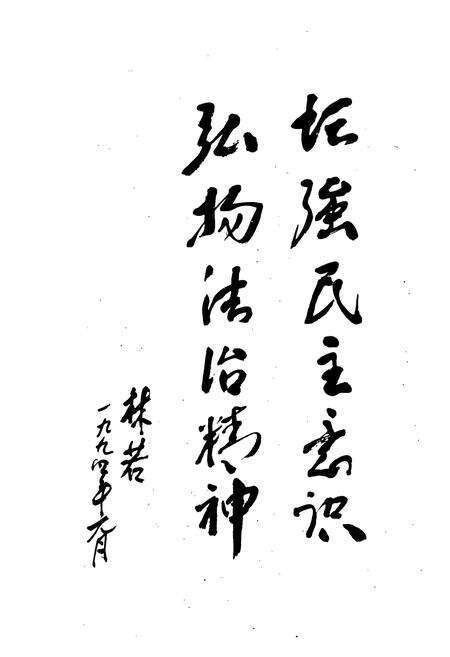 增強民主意识
弘扬法治精神
林若
一九九四年元月